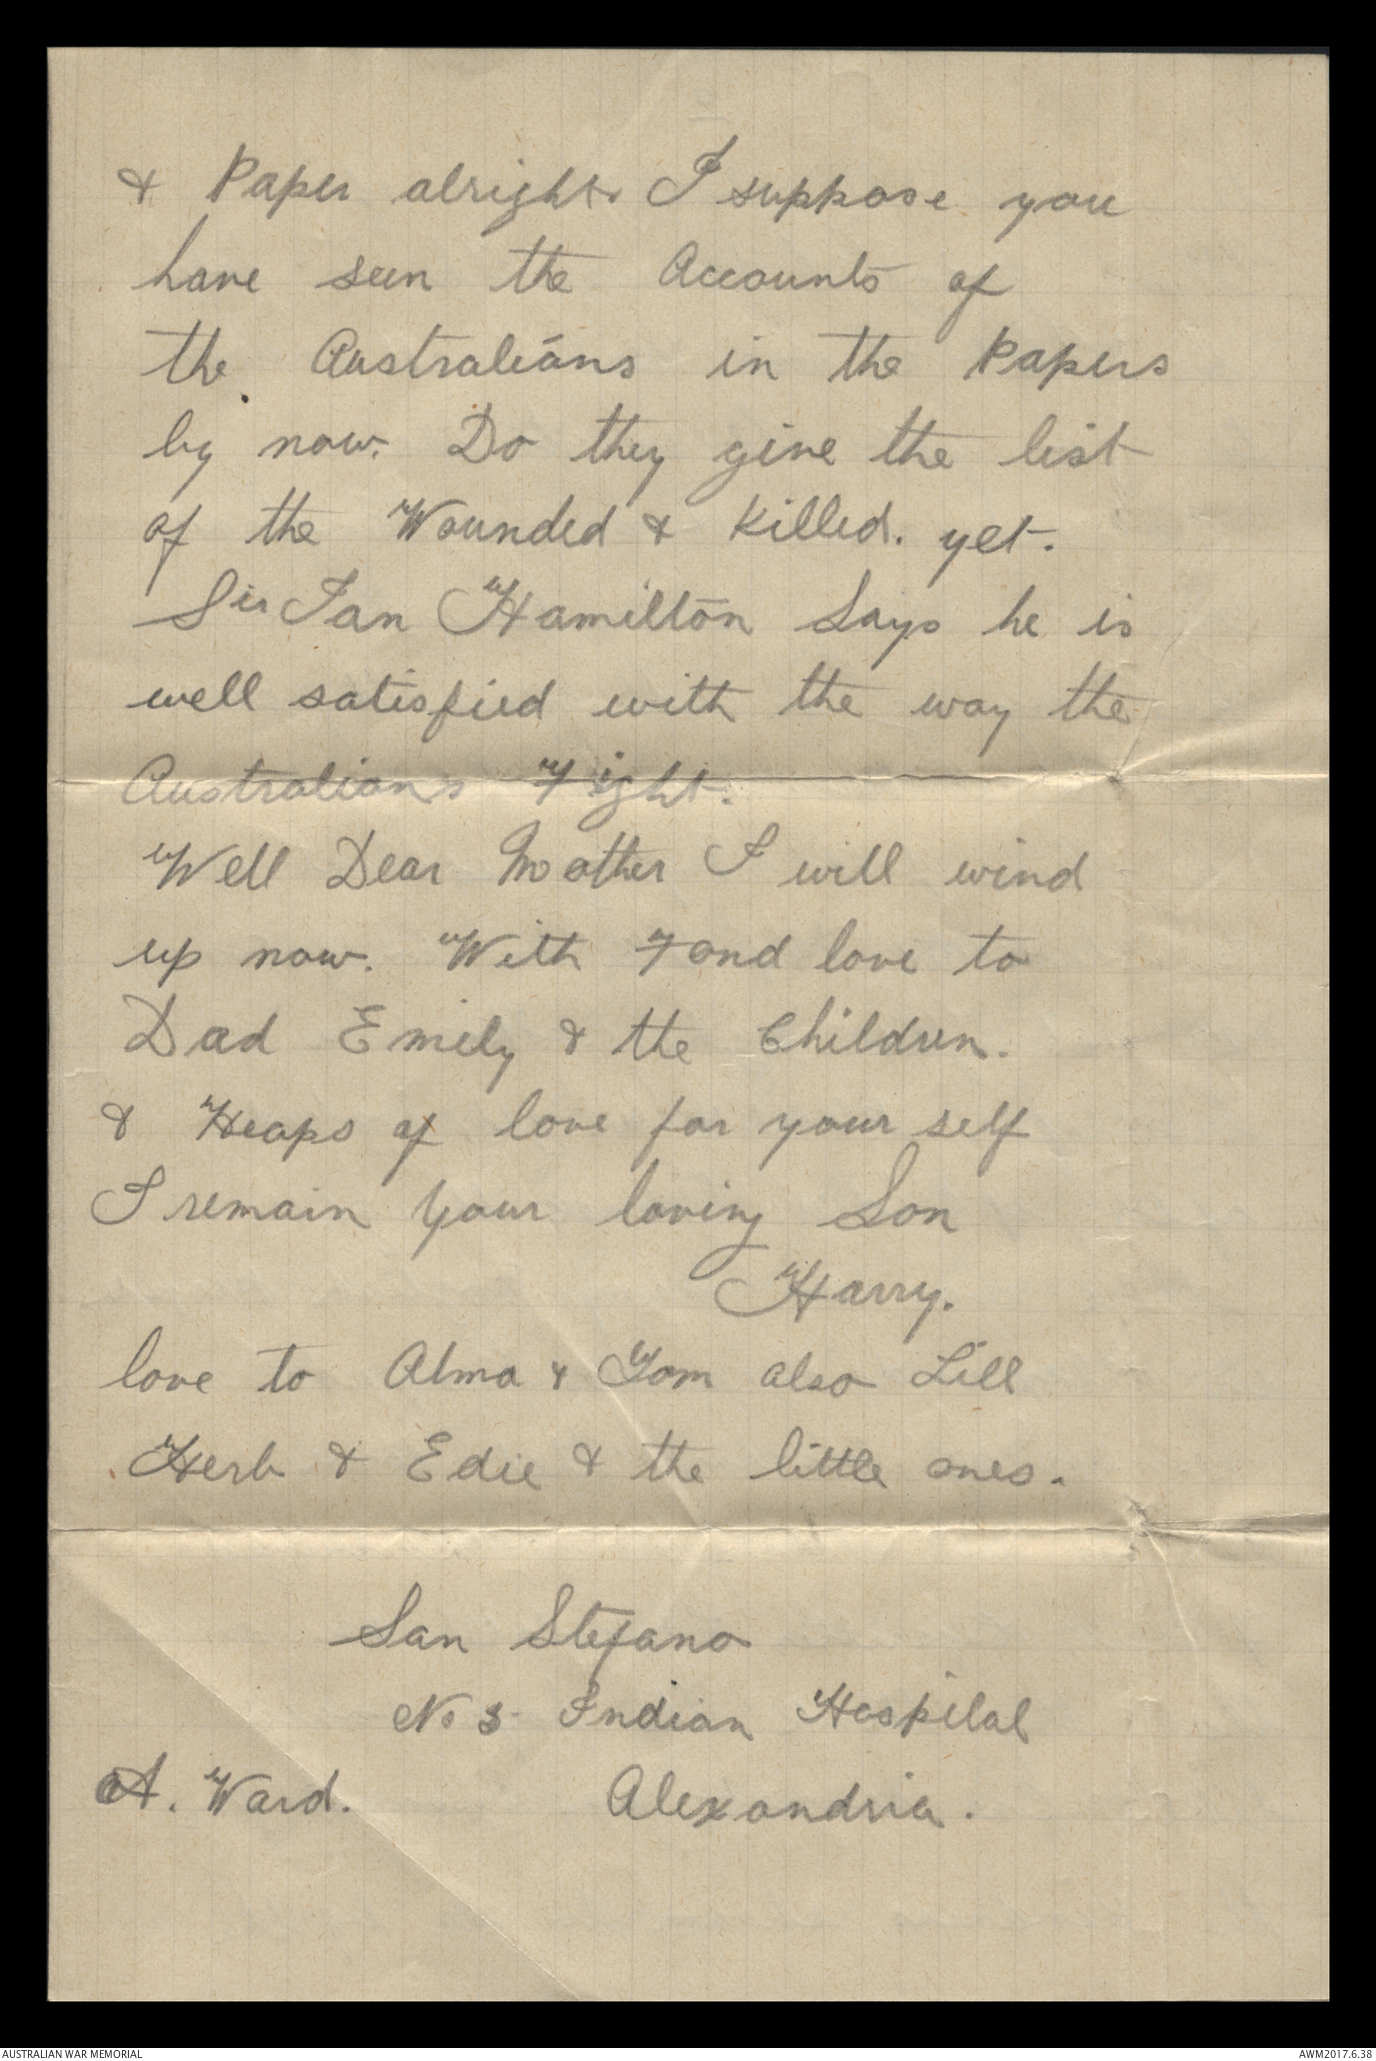 & Paper alright. I suppose you
have seen the Accounts of
the Australians in the Papers
by now. Do they give the list
of the Wounded & Killed. yet.
Sir Ian Hamilton Says he is
well satisfied with the way the
Australians Fight.
Well Dear Mother I will wind
up now. With Fond love to
Dad Emily & the Children.
& Heaps of love for your self
I remain Your loving Son
Harry.
love to Alma & Tom also Lill
Herb & Edie & the little ones.
San Stefano
No 3 Indian Hospital
A. Ward. Alexandria.
AUSTRALIAN WAR MEMORIAL AWM2017.6.38